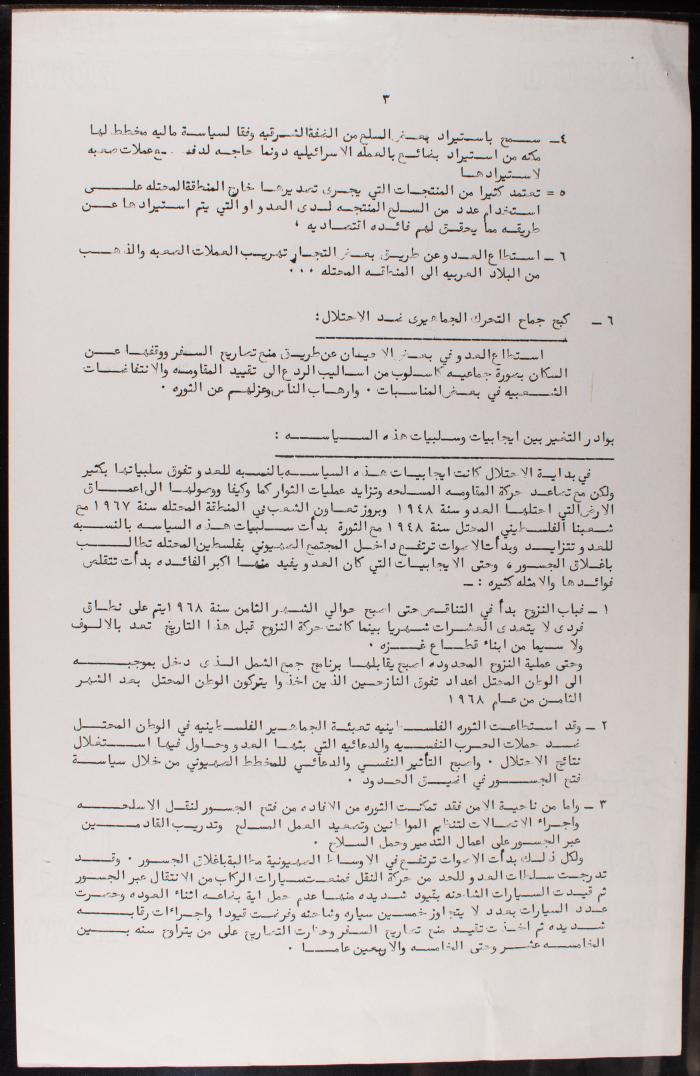 ٣
٤ــ سـمـع باستيراد بعض السلع من الضفة الشرقيه وفقا لسياسة ماليه مخطط لها
مكنه من استيراد بضائع بالعمله الاسرائيليه دونما حاجه لدفع عملات صعبه
لاستيرادها
٥ = تعتمد كثيرا من المنتجات التي يجرى تصديرها خارج المنطقة المحتله على
استخدام عدد من السلع المنتجه لدى العدو او التي يتم استيرادها عن
طريقه مما يحقق لهم فائده اقتصاديه ،
٦ ــ استطاع العدو عن طريق بعض التجار تهريب العملات الصعبه والذهب
من البلاد العربيه الى المنطقه المحتله ...
٦ ــ كبح جماح التحرك الجماهيرى ضد الاحتلال :
استطاع العدو في بعض الاحيان عن طريق منح تصاريح السفر ووقفها عن
السكان بصورة جماعيه كاسلوب من اساليب الردع الى تقييد المقاومه والانتفاضات
الشعبيه في بعض المناسبات . وارهاب الناس وعزلهم عن الثوره .
بوادر التغير بين ايجابيات وسلبيات هذه السياسه :
في بداية الاحتلال كانت ايجابيات هذه السياسه بالنسبه للعدو تفوق سلبياتها بكثير
ولكن مع تصاعد حركة المقاومه المسلحه وتزايد عمليات الثوار كما وكيفا ووصولها الى اعماق
الارض التي احتلها العدو سنة ١٩٤٨ وبروز تعاون الشعب في المنطقة المحتله سنة ١٩٦٧ مع
شعبنا الفلسطيني المحتل سنة ١٩٤٨ مع الثورة بدأت سلبيات هذه السياسه بالنسبه
للعدو تتزايد وبدأت الاصوات ترتفع داخل المجتمع الصهيوني بفلسطين المحتله تطالب
باغلاق الجسور ، وحتى الايجابيات التي كان العدو يفيد منها اكبر الفائده بدأت تتقلص
فوائدها والامثله كثيره : ــ
١ ــ فباب النزوح بدأ في التناقص حتى اصبح حوالي الشهر الثامن سنة ١٩٦٨ يتم على نطاق
فردى لا يتعدى العشرات شهريا بينما كانت حركة النزوح قبل هذا التاريخ تعد بالالوف
ولا سيما من ابناء قطاع غزه .
وحتى عملية النزوح المحدوده اصبح يقابلها برنامج جمع الشمل الذى دخل بموجبه
الى الوطن المحتل اعداد تفوق النازحين الذين اخذوا يتركون الوطن المحتل بعد الشهر
الثامن من عام ١٩٦٨
٢ ــ وقد استطاعت الثوره الفلسطينيه تعبئة الجماهير الفلسطينيه في الوطن المحتل
ضد حملات الحرب النفسيه والدعائيه التي بثها العدو وحاول فيها استغلال
نتائج الاحتلال . واصبح التأثير النفسي والدعائي للمخطط الصهيوني من خلال سياسة
فتح الجسور في اضيق الحدود .
٣ ــ واما من ناحية الامن فقد تمكنت الثوره من الافاده من فتح الجسور لنقل الاسلحه
واجراء الاتصالات لتنظيم المواطنين وتصعيد العمل المسلح وتدريب القادمين
عبر الجسور على اعمال التدمير وحمل السلاح .
ولكل ذلك بدأت الاصوات ترتفع في الاوساط الصهيونية مطالبة باغلاق الجسور . وقد
تدرجت سلطات العدو للحد من حركة النقل فمنعت سيارات الركاب من الانتقال عبر الجسور
ثم قيدت السيارات الشاحنه بقيود شديده منها عدم حمل اية بضاعه اثناء العوده وحصرت
عدد السيارات بعدد لا يتجاوز خمسين سياره وشاحنه وفرضت قيودا واجراءات رقابه
شديده ثم اخذت تقيد منح تصاريح السفر وحظرت التصاريح على من يتراوح سنه بين
الخامسه عشر وحتى الخامسه والاربعين عاما .